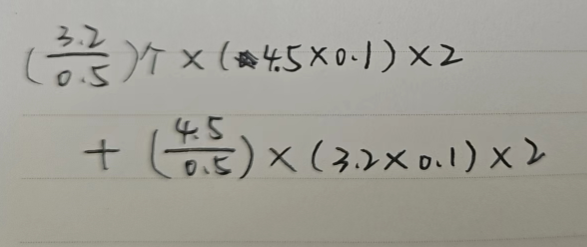 (3.2/0.5)个 × (4.5×0.1)×2
+ (4.5/0.5)×(3.2×0.1)×2